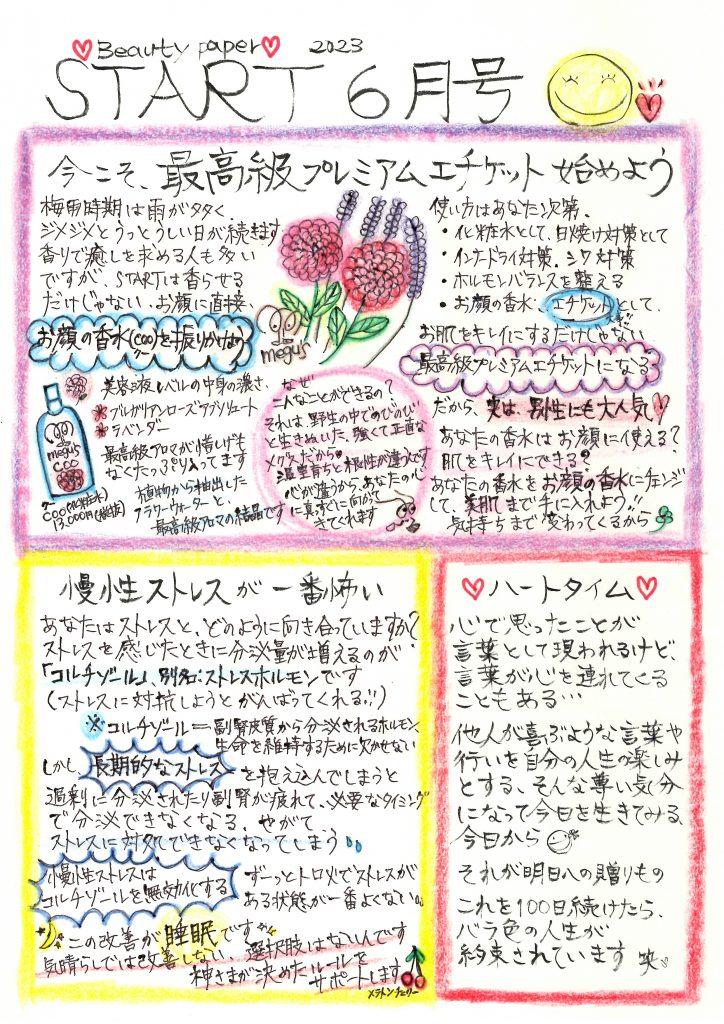 Beauty paper 2023
START 6月号
今こそ、最高級プレミアムエチケット始めよう
梅雨時期は雨が多く、
ジメジメとうっとうしい日が続きます
香りで癒しを求める人も多い
ですが、STARTは香らせる
だけじゃない、お顔に直接
お顔の香水(coo)を振りかけよう
クー
美容液レベルの中身の濃さ、
※ブルガリアンローズアブソリュート
※ラベンダー
最高級アロマが惜しげも
なくたっぷり入ってます
植物から抽出した
フラワーウォーターと、
最高級アロマの結晶です
megu's
coo
クー
COO(化粧水)
13,000円(税抜)
megu's
なぜ
こんなことができるの?
それは、野生の中でのびのび
と生きぬいた、強くて正直な
メグスだから
温室育ちと根性が違うんです
心が違うから、あなたの心
に真っすぐに向かって
きてくれます
使い方はあなた次第、
・化粧水として、日焼け対策として
・インナードライ対策、シワ対策
・ホルモンバランスを整える
・お顔の香水、エチケットとして、
お肌をキレイにするだけじゃない
最高級プレミアムエチケットになる
だから、実は、男性にも大人気
あなたの香水はお顔に使える?
肌をキレイにできる?
あなたの香水をお顔の香水にチェンジ
して、美肌まで手に入れよう!!
気持ちまで変わってくるから
慢性ストレスが一番怖い
あなたはストレスと、どのように向き合っていますか?
ストレスを感じたときに分泌量が増えるのが、
「コルチゾール」別名:ストレスホルモンです
(ストレスに対抗しようとがんばってくれる!!)
※コルチゾール=副腎皮質から分泌されるホルモン、
生命を維持するために欠かせない
しかし長期的なストレスを抱え込んでしまうと
過剰に分泌されたり副腎が疲れて、必要なタイミング
で分泌できなくなる、やがて
ストレスに対処できなくなってしまう
慢性ストレスは
コルチゾールを無効化する
ずーっとトロ火でストレスが
ある状態が一番よくない。
この改善が睡眠です
気晴らしでは改善しない、選択肢はないんです
神さまが決めたルールを
サポートします
メラトンチェリー
ハートタイム
心で思ったことが
言葉として現われるけど、
言葉が心を連れてくる
こともある…
他人が喜ぶような言葉や
行いを自分の人生の楽しみ
とする、そんな尊い気分
になって今日を生きてみる、
今日から
それが明日への贈りもの
これを100日続けたら、
バラ色の人生が
約束されています 央